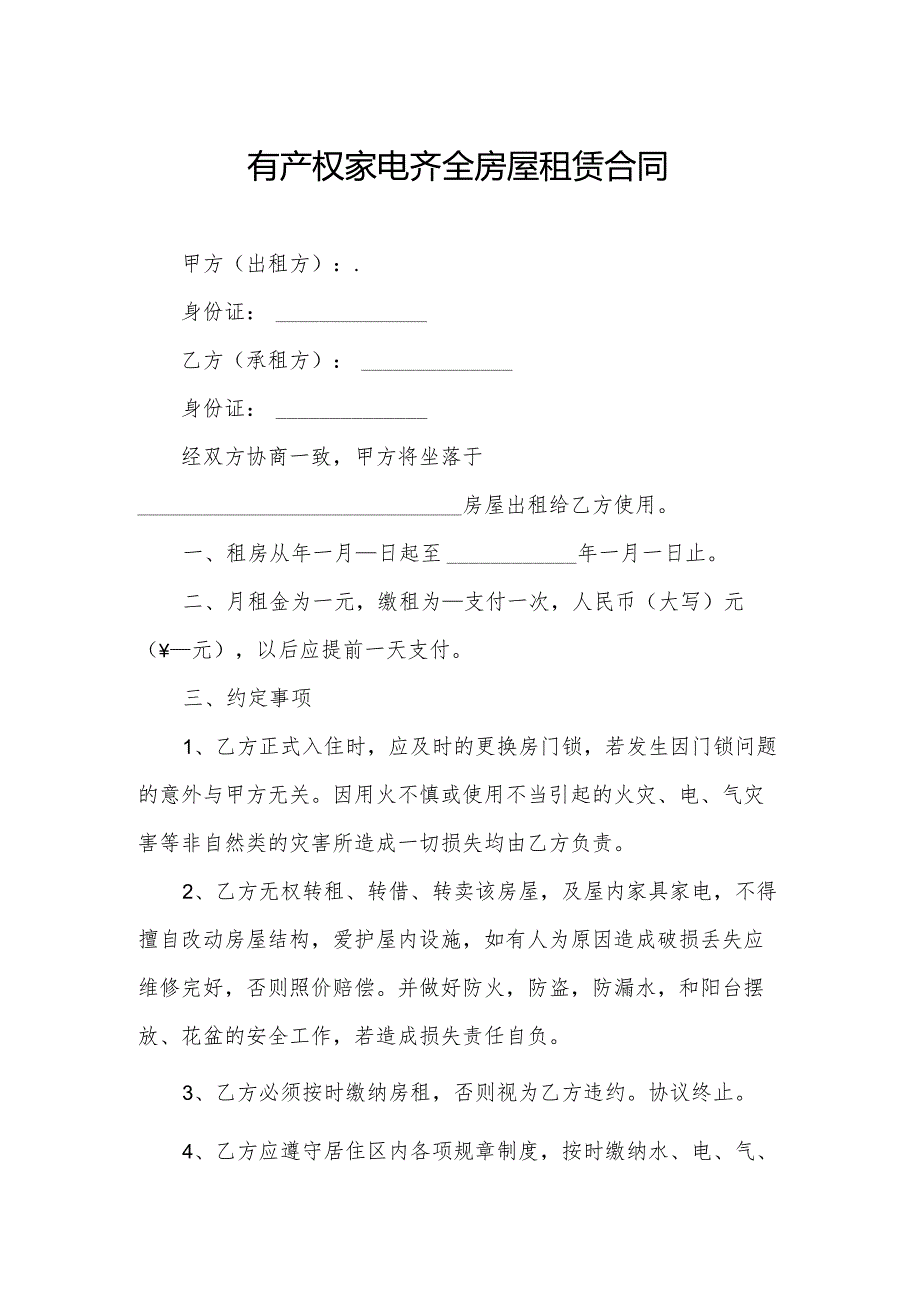 有产权家电齐全房屋租赁合同
甲方（出租方）：.
身份证： ______________
乙方（承租方）： ______________
身份证： ______________
经双方协商一致，甲方将坐落于
______________________________房屋出租给乙方使用。
一、租房从年一月—日起至 ____________年一月一日止。
二、月租金为一元，缴租为—支付一次，人民币（大写）元
（¥—元），以后应提前一天支付。
三、约定事项
1、乙方正式入住时，应及时的更换房门锁，若发生因门锁问题
的意外与甲方无关。因用火不慎或使用不当引起的火灾、电、气灾
害等非自然类的灾害所造成一切损失均由乙方负责。
2、乙方无权转租、转借、转卖该房屋，及屋内家具家电，不得
擅自改动房屋结构，爱护屋内设施，如有人为原因造成破损丢失应
维修完好，否则照价赔偿。并做好防火，防盗，防漏水，和阳台摆
放、花盆的安全工作，若造成损失责任自负。
3、乙方必须按时缴纳房租，否则视为乙方违约。协议终止。
4、乙方应遵守居住区内各项规章制度，按时缴纳水、电、气、